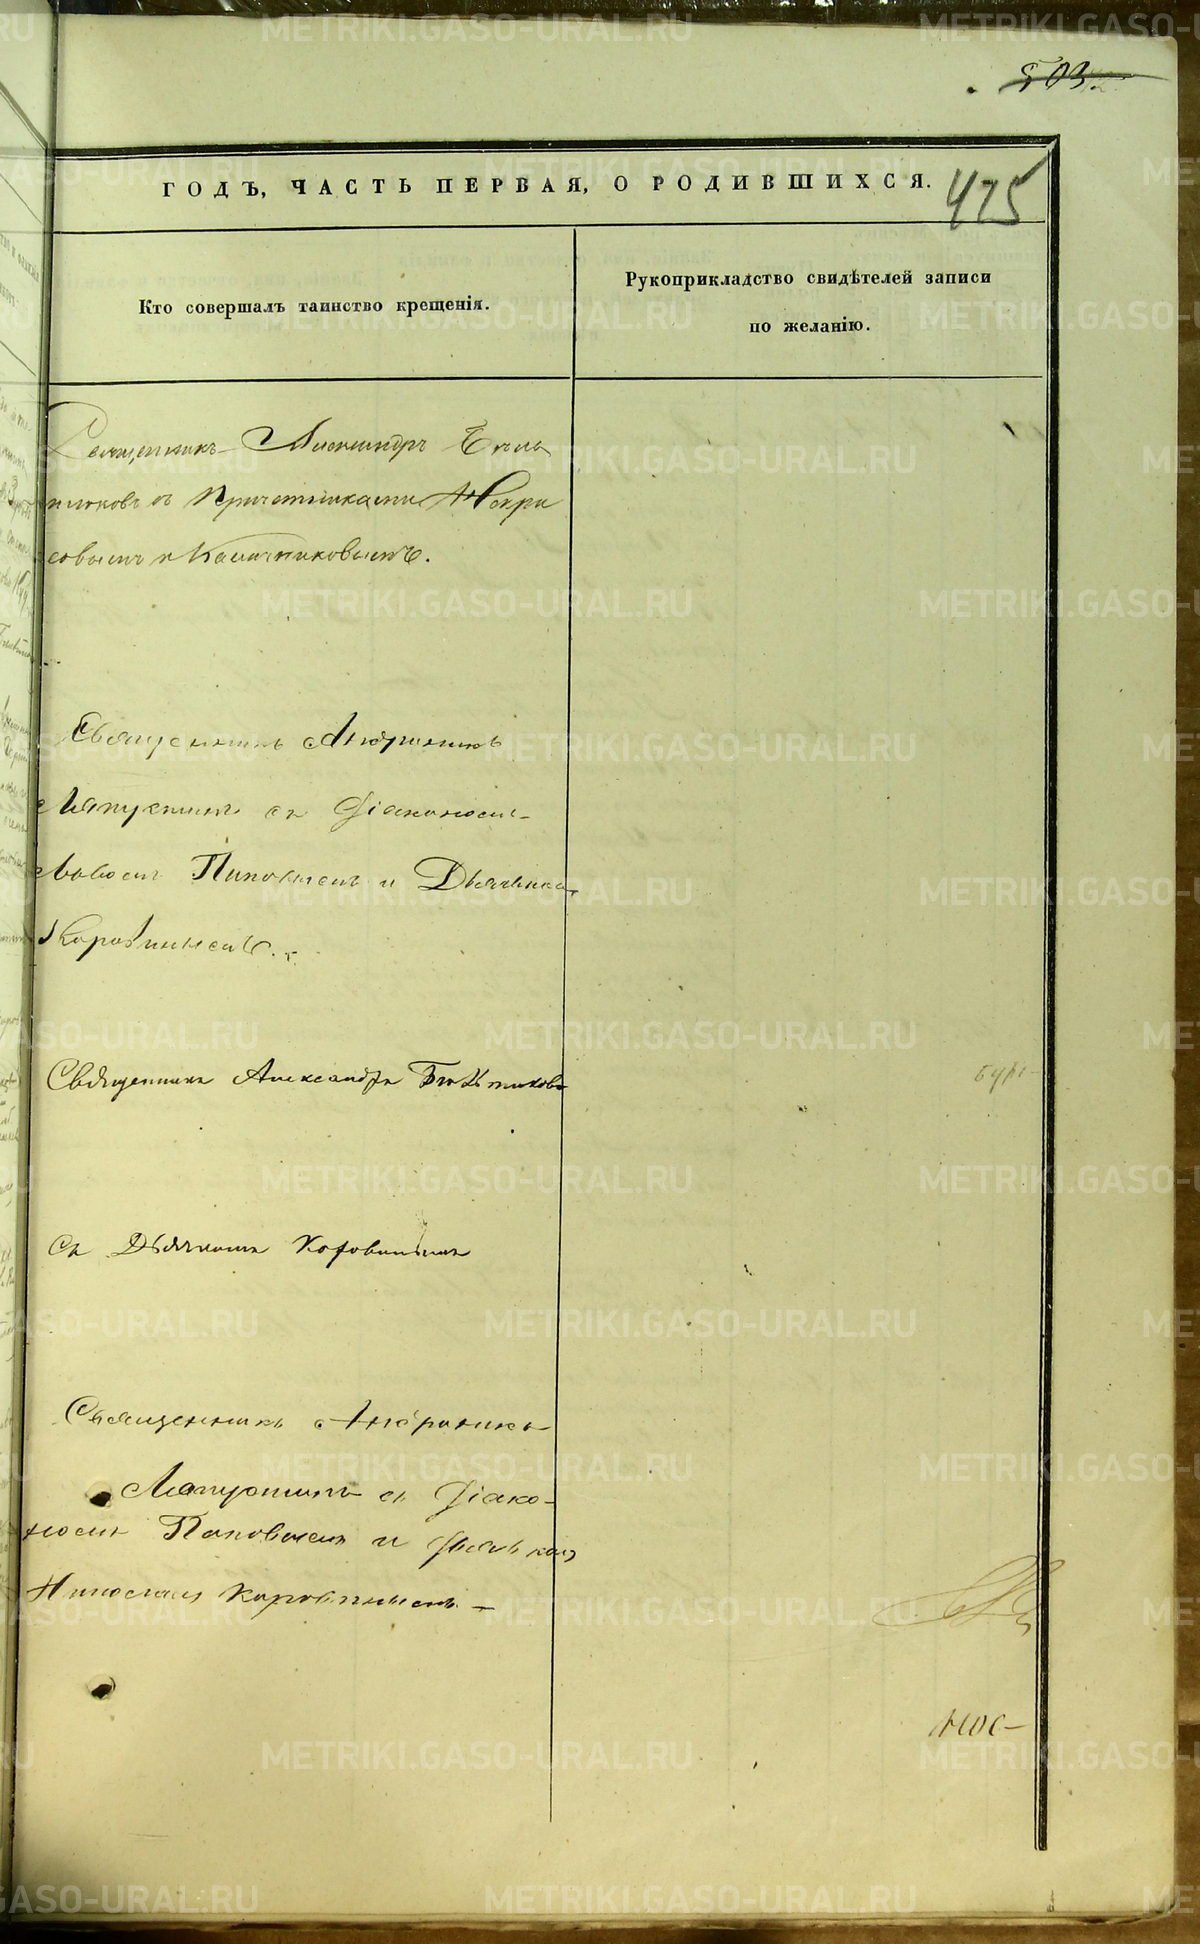 503
ГОДЪ, ЧАСТЬ ПЕРВАЯ, О РОДИВШИХСЯ.
475
Кто совершалъ таинство крещенія.
Рукоприкладство свидѣтелей записи
по желанію.
Священникъ Александръ
съ Причетниками
совымъ и Калачниковымъ.
Священникъ Андроникъ
Ляпустинъ съ Діакономъ
Львомъ Поповымъ и Дьячкомъ
Коровинымъ.
Священникъ Александръ
Съ Дьячкомъ Коровинымъ
Священникъ Андроникъ
Ляпустинъ съ Діако-
номъ Поповымъ и Дьячкомъ
Николаемъ Коровинымъ
METRIKI.GASO-URAL.RU